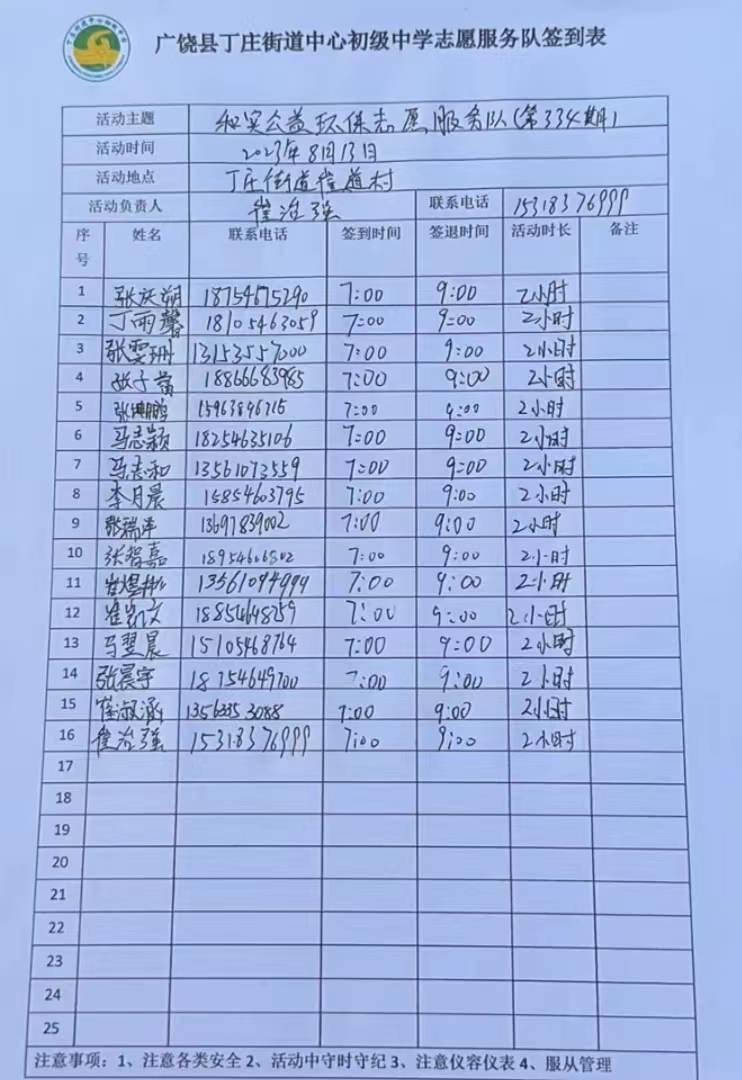 广饶县丁庄街道中心初级中学志愿服务队签到表
活动主题 和实公益环保志愿服务队(第334期)
活动时间 2023年8月13日
活动地点 丁庄街道崔道村
活动负责人 崔治强 联系电话 15318376999
序号 姓名 联系电话 签到时间 签退时间 活动时长 备注
1 张族朔 18754675290 7:00 9:00 2小时
2 丁雨馨 18105463059 7:00 9:00 2小时
3 张雯珊 13153557000 7:00 9:00 2小时
4 张子 18866683985 7:00 9:00 2小时
5 张鹏 15963896715 7:00 9:00 2小时
6 马志颖 18254635106 7:00 9:00 2小时
7 马志和 13561073559 7:00 9:00 2小时
8 李月晨 15854603795 7:00 9:00 2小时
9 张瑞泽 13697839002 7:00 9:00 2小时
10 张智嘉 18954606802 7:00 9:00 2小时
11 崔煜彬 13561094999 7:00 9:00 2小时
12 崔凯文 18854648259 7:00 9:00 2小时
13 马翌晨 15105468764 7:00 9:00 2小时
14 张晨宇 18754649700 7:00 9:00 2小时
15 崔淑涵 7:00 9:00 2小时
16 崔治强 15318376999 7:00 9:00 2小时
17
18
19
20
21
22
23
24
25
注意事项:1、注意各类安全 2、活动中守时守纪 3、注意仪容仪表 4、服从管理